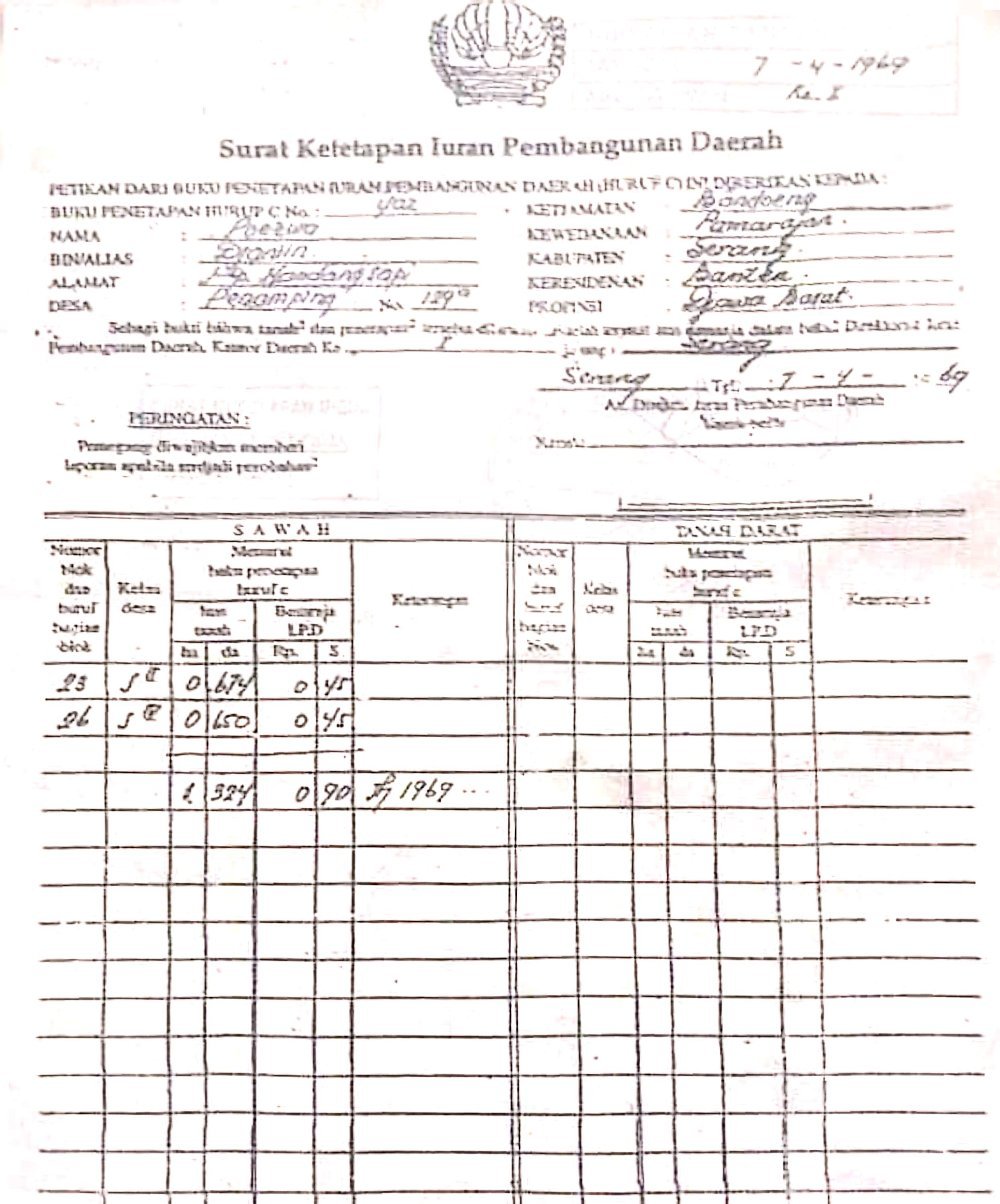 7 - 4 - 1969
Ke. I
Surat Ketetapan Iuran Pembangunan Daerah
PETIKAN DARI BUKU PENETAPAN IURAN PEMBANGUNAN DAERAH (HURUF C) INI DIBERIKAN KEPADA :
BUKU PENETAPAN HURUP C No. :
NAMA :
BIN/ALIAS :
ALAMAT : Kp.
DESA : Penamping No. 129a
KETJAMATAN : Bandoeng
KEWEDANAAN : Pamarajan.
KABUPATEN : Serang.
KERESIDENAN : Banten.
PROPINSI : Djawa Barat.
Sebagi bukti bahwa tanah² dan penetapan²
Pembangunan Daerah, Kantor Daerah Ke I Serang
Serang Tgl. : 7 - 4 - 69
An. Direksi Iuran Pembangunan Daerah
PERINGATAN :
Pemegang diwajibkan memberi
laporan apabila terdjadi perobahan²
SAWAH
Nomor blok dan huruf bagian blok
Kelas desa
Menurut buku penetapan huruf c
luas tanah
Besarnja I.P.D
Keterangan
ha da Rp. S
TANAH DARAT
Nomor blok dan huruf bagian blok
Kelas desa
Menurut buku penetapan huruf c
luas tanah
Besarnja I.P.D
Keterangan
ha da Rp. S
23 S 0 674 0 45
26 S 0 650 0 45
1 324 0 90 1969